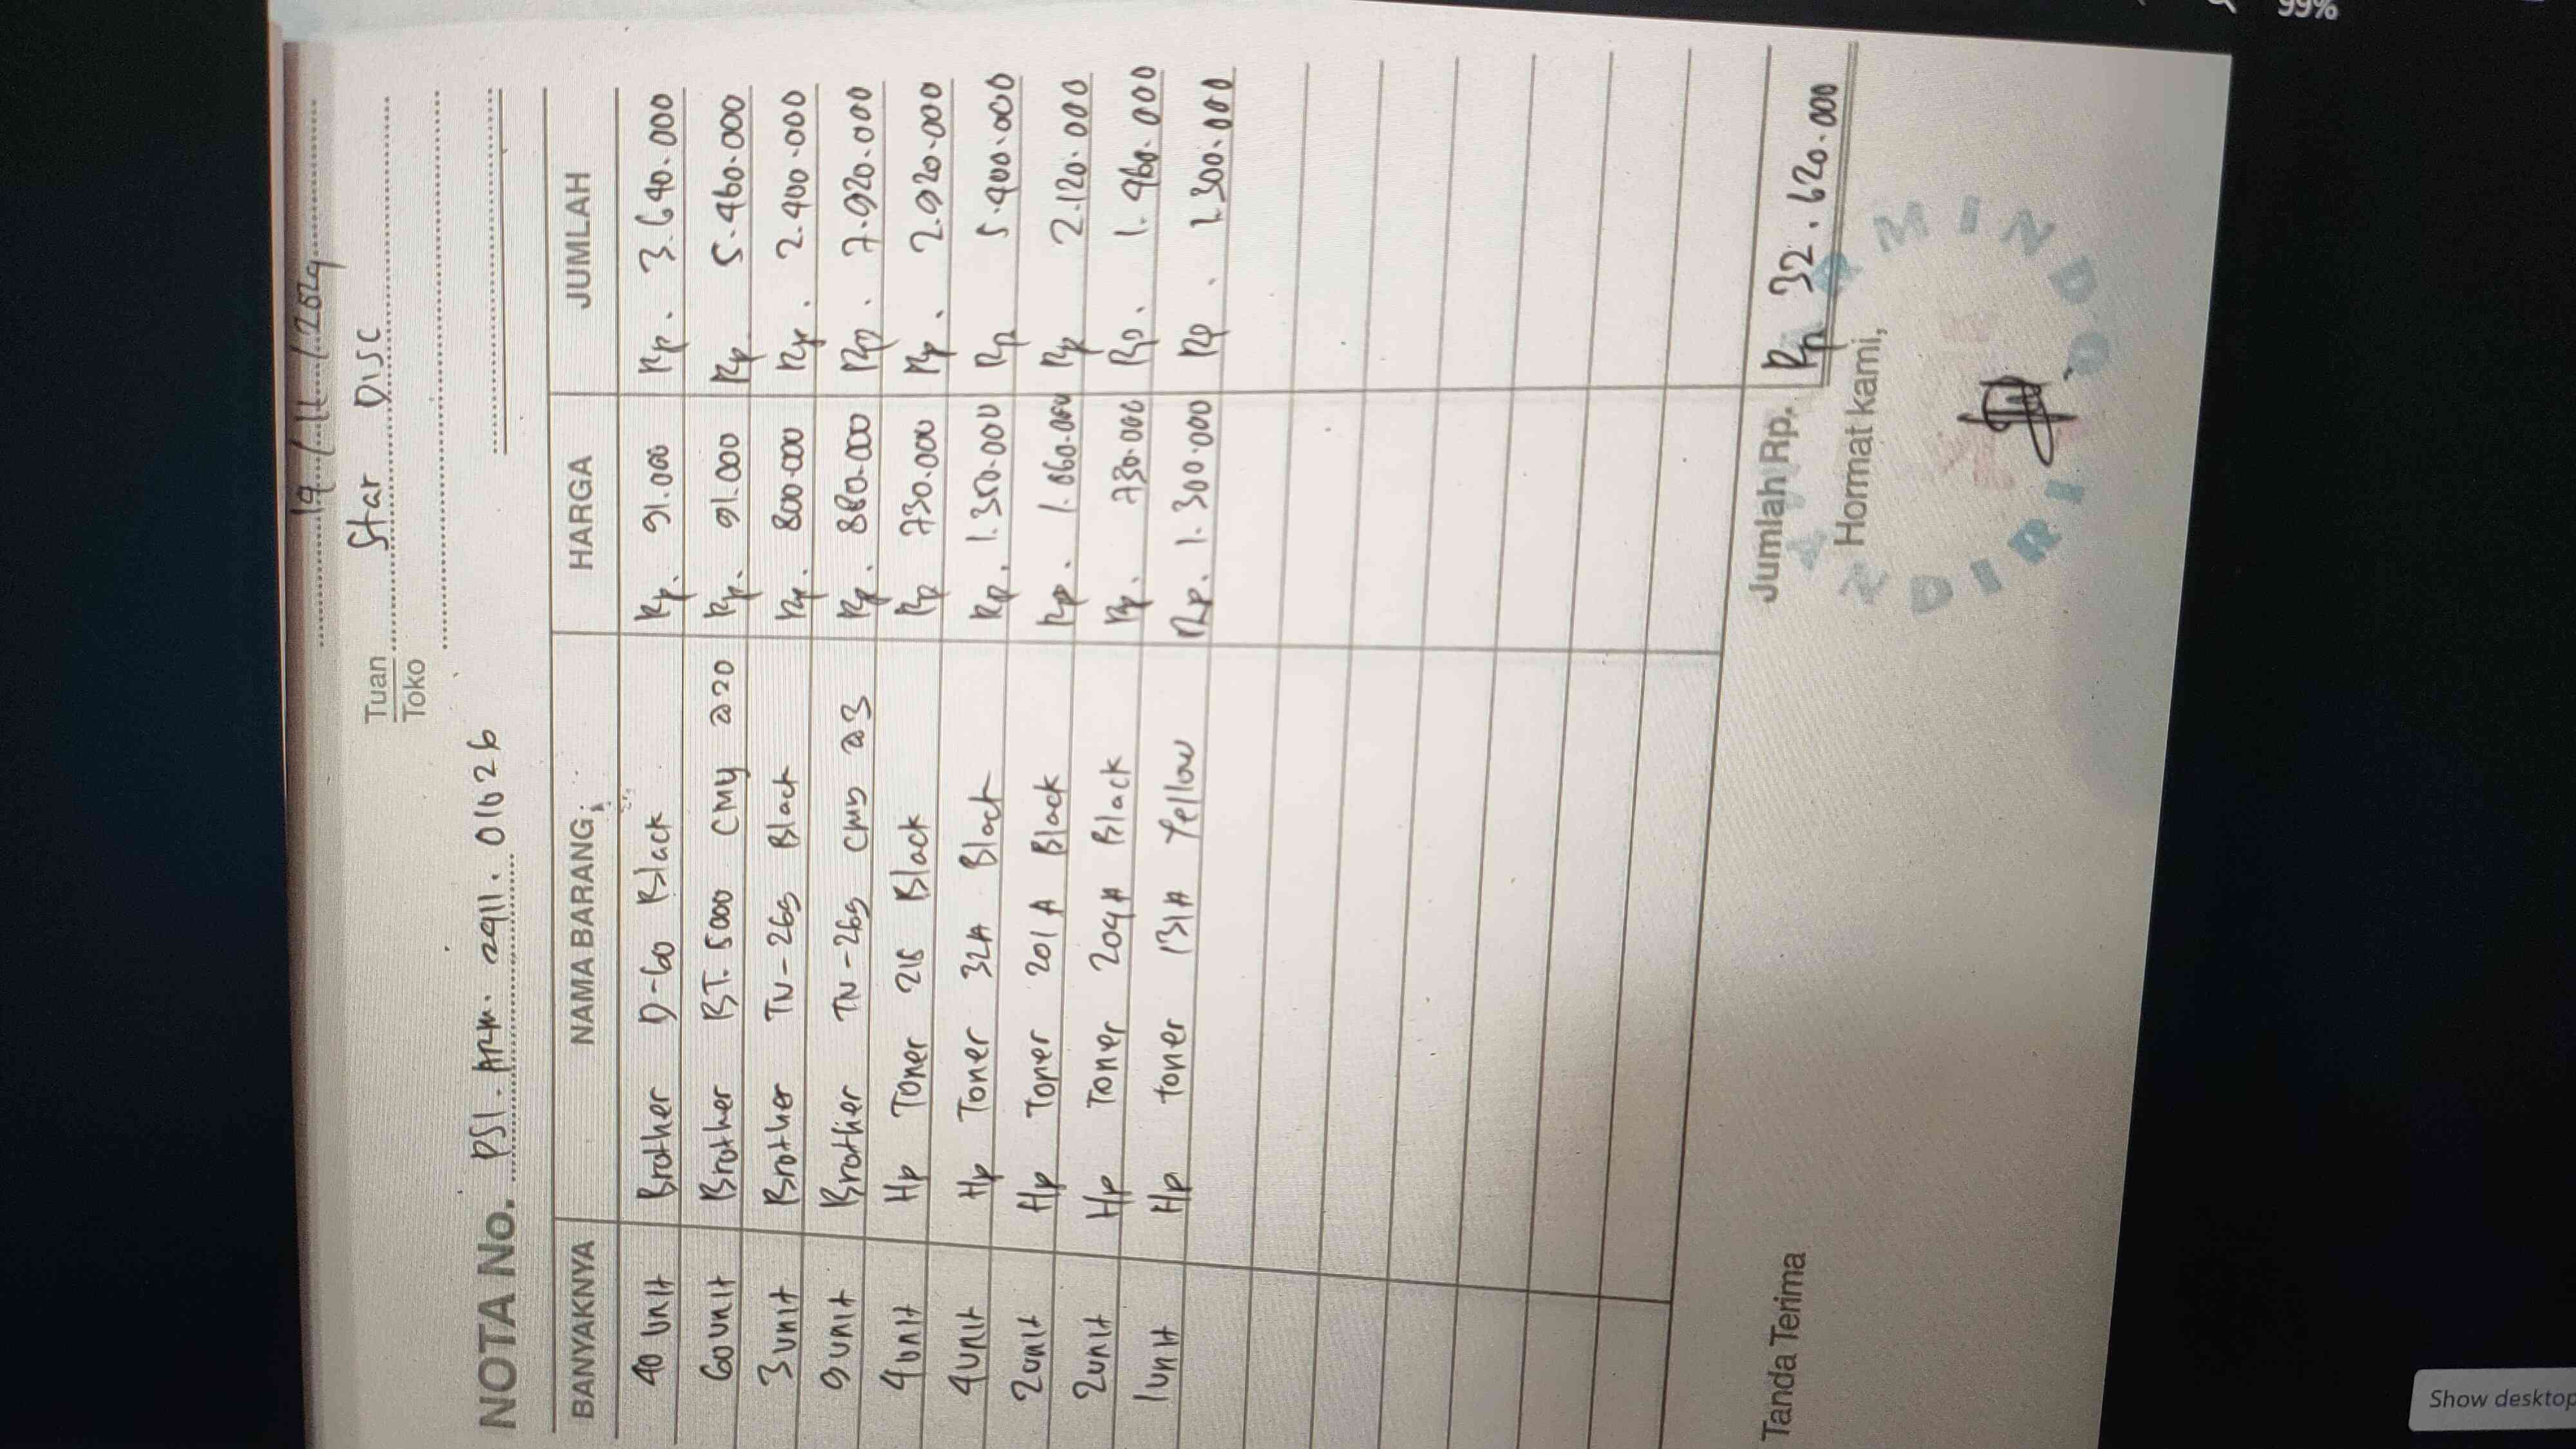 99%
19/11/2024
Tuan Star Disc
Toko
NOTA No. PSI.ARM.2411.01026
BANYAKNYA NAMA BARANG HARGA JUMLAH
40 unit Brother D-60 Black Rp. 91.000 Rp. 3.640.000
60 unit Brother BT.5000 CMY @20 Rp. 91.000 Rp 5.460.000
3 unit Brother TN-265 Black Rp. 800.000 Rp. 2.400.000
9 unit Brother TN-265 CMY @3 Rp. 880.000 Rp. 7.920.000
4 unit Hp Toner 215 Black Rp 730.000 Rp. 2.920.000
4 unit Hp Toner 32A Black Rp. 1.350.000 Rp 5.400.000
2 unit Hp Toner 201A Black Rp. 1.060.000 Rp 2.120.000
2 unit Hp Toner 204A Black Rp. 730.000 Rp. 1.460.000
1 unit Hp toner 131A Yellow Rp. 1.300.000 Rp. 1.300.000
Jumlah Rp. Rp 32.620.000
Tanda Terima Hormat kami,
Show desktop